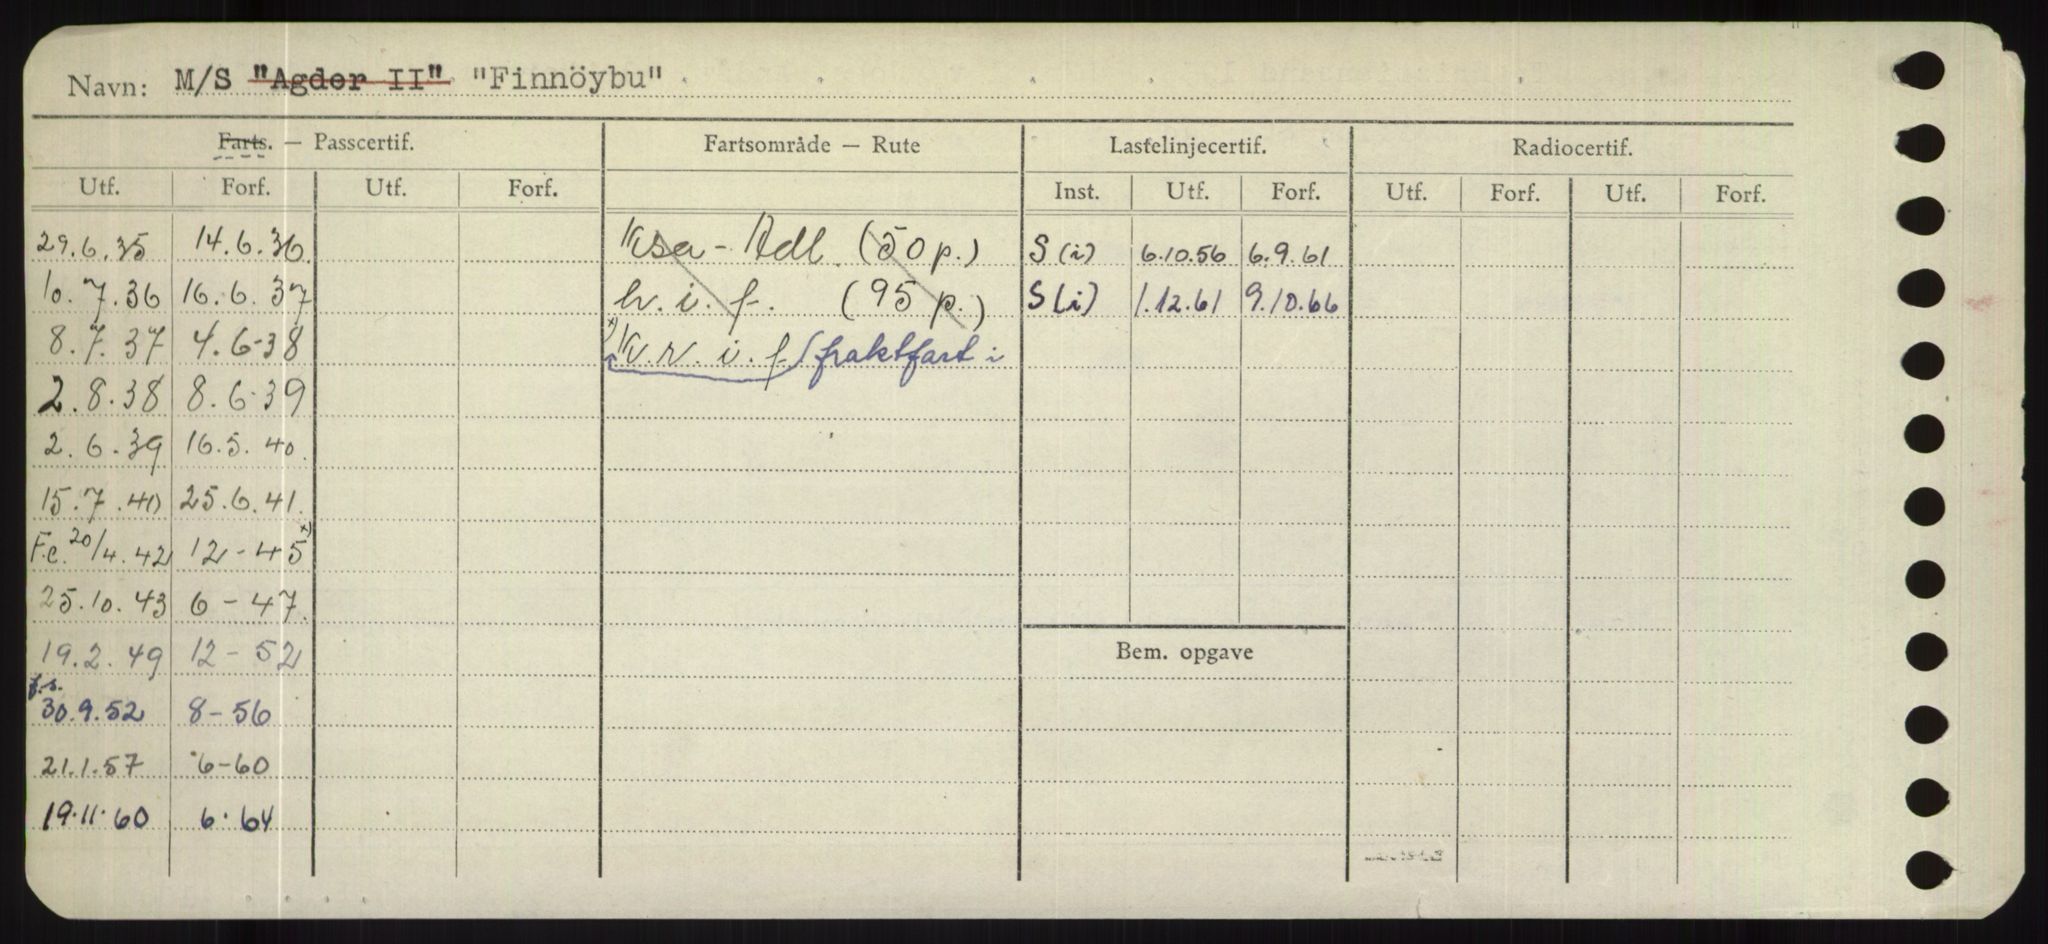 Navn: M/S "Agder II" "Finnöybu"
Farts. — Passcertif. Fartsområde — Rute Lastelinjecertif. Radiocertif.
Utf. Forf. Utf. Forf. Inst. Utf. Forf. Utf. Forf. Utf. Forf.
29.6.35 14.6.36. Ksa - Adl. (50 p.) S (i) 6.10.56 6.9.61
10.7.36 16.6.37 h.i.f. (95 p.) S (i) 1.12.61 9.10.66
8.7.37 4.6-38 x) K.v.i.f. fraktfart i
2.8.38 8.6-39
2.6.39 16.5.40.
15.7.40 25.6.41.
F.c. 20/4.42 12-45 x)
25.10.43 6-47.
19.2.49 12-52
f.s.
30.9.52 8-56
Bem. opgave
21.1.57 6-60
19.11.60 6.64